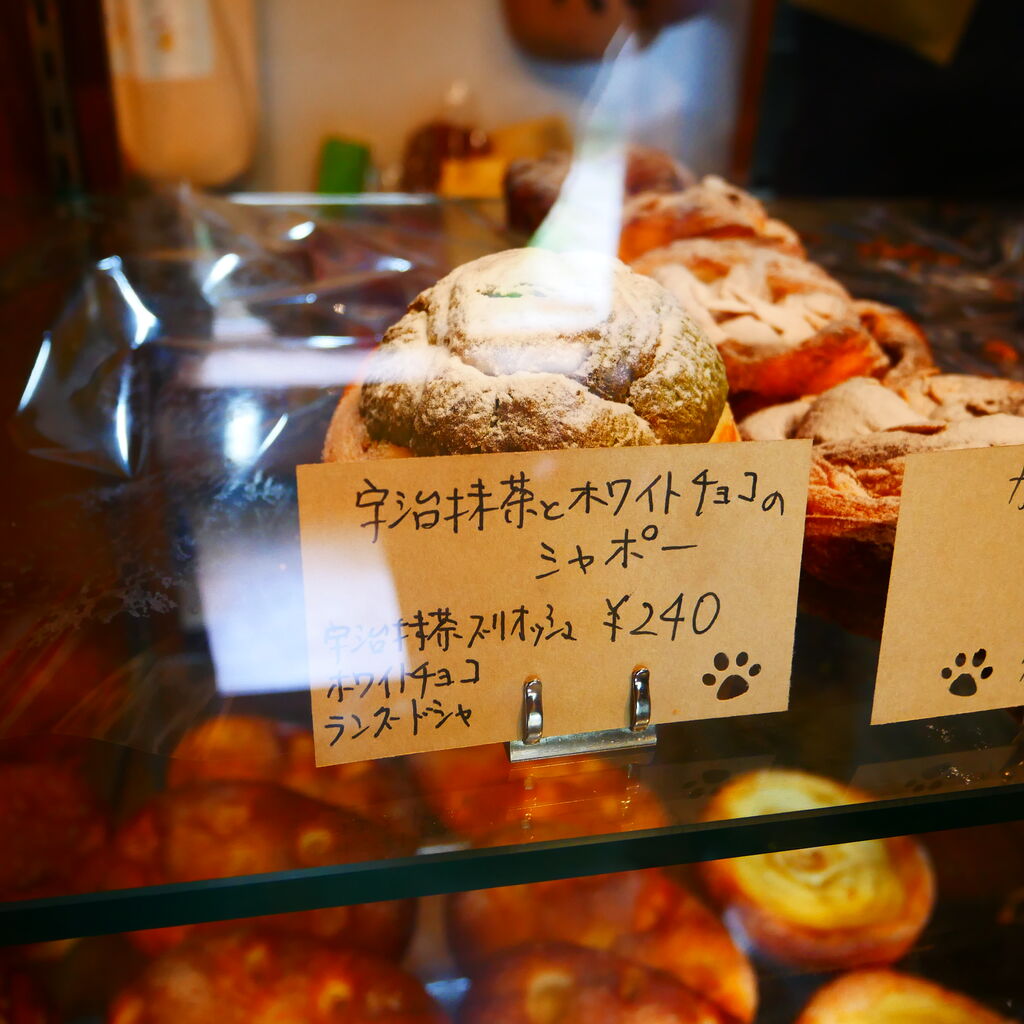 宇治抹茶とホワイトチョコの
シャポー
宇治抹茶ブリオッシュ ¥240
ホワイトチョコ
ラングドシャ